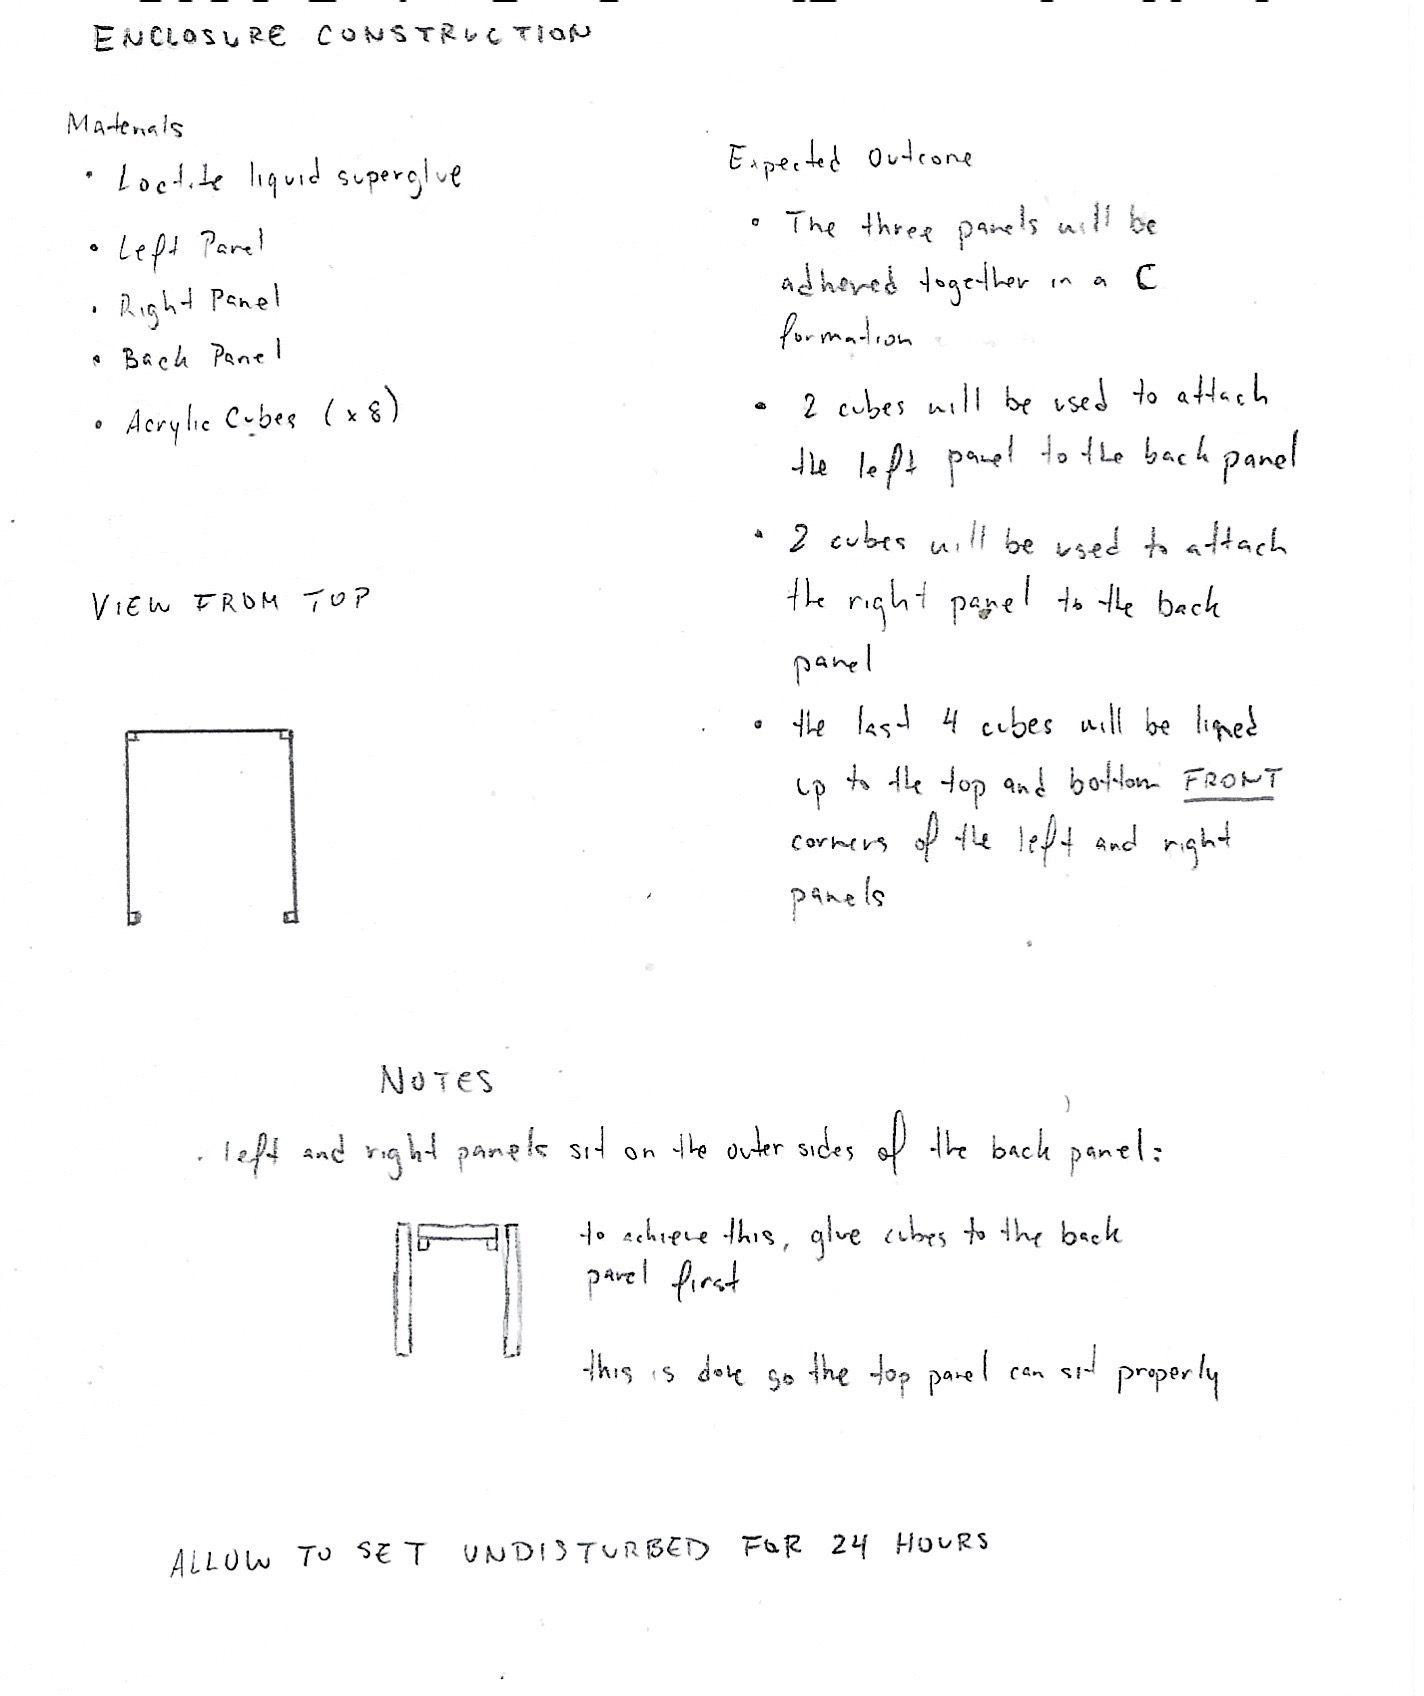 ENCLOSURE CONSTRUCTION
Materials
• Loctite liquid superglue
• Left Panel
• Right Panel
• Back Panel
• Acrylic Cubes (x8)
VIEW FROM TOP
Expected Outcome
• The three panels will be
adhered together in a C
formation
• 2 cubes will be used to attach
the left panel to the back panel
• 2 cubes will be used to attach
the right panel to the back
panel
• the last 4 cubes will be lined
up to the top and bottom FRONT
corners of the left and right
panels
NOTES
• left and right panels sit on the outer sides of the back panel:
to achieve this, glue cubes to the back
panel first
this is done so the top panel can sit properly
ALLOW TO SET UNDISTURBED FOR 24 HOURS